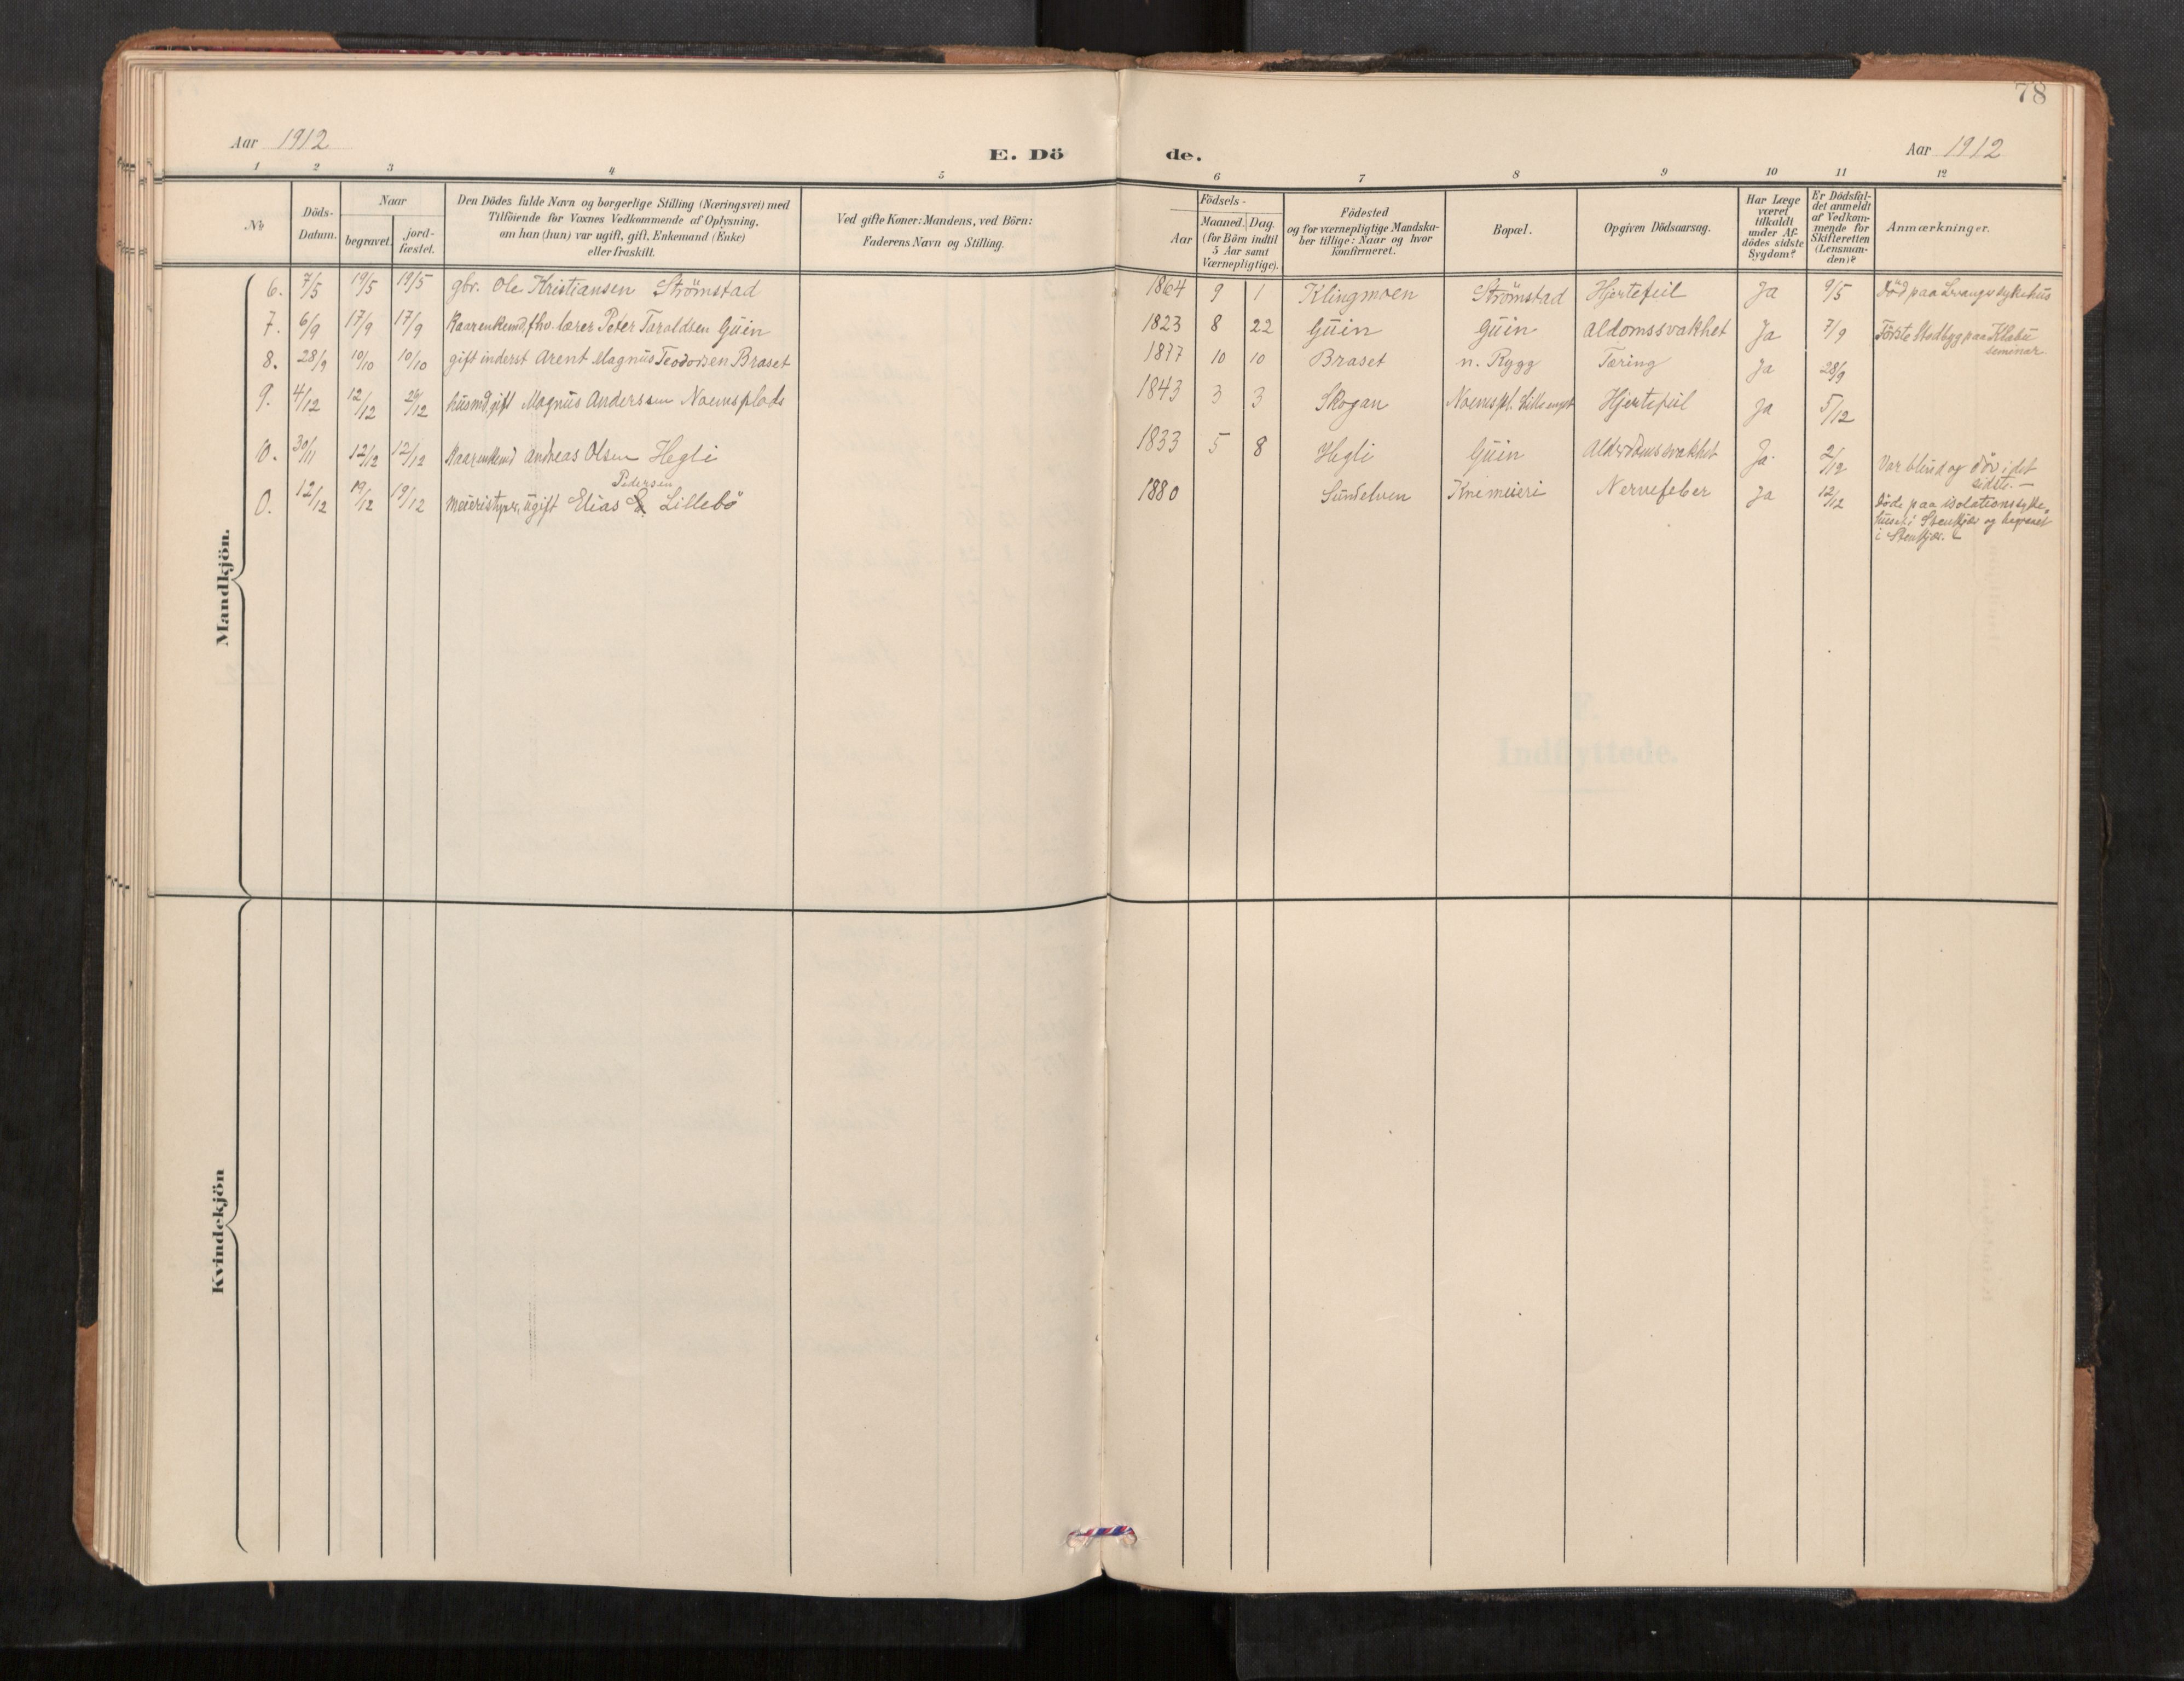 78
Aar 1912
E. Dö de.
Aar 1912
1 2 3 4 5 6 7 8 9 10 11 12
No
Döds-
Datum.
Naar
begravet.
jord-
fæstet.
Den Dödes fulde Navn og borgerlige Stilling (Næringsvei) med
Tilföiende for Voxnes Vedkommende af Oplysning,
om han (hun) var ugift, gift, Enkemand (Enke)
eller fraskilt.
Ved gifte Koner: Mandens, ved Börn:
Faderens Navn og Stilling.
Födsels-
Aar
Maaned. Dag.
(for Börn indtil
5 Aar samt
Værnepligtige).
Födested
og for værnepligtige Mandska-
ber tillige: Naar og hvor
konfirmeret.
Bopæl.
Opgiven Dödsaarsag.
Har Læge
været
tilkaldt
under Af-
dödes sidste
Sygdom?
Er Dödsfal-
det anmeldt
af Vedkom-
mende for
Skifteretten
(Lensman-
den)?
Anmærkninger.
Mandkjön.
6. 7/5 19/5 19/5 gbr. Ole Kristiansen Strömstad 1864 9 1 Klingmoen Strömstad Hjertefeil Ja 9/5 Död paa Levanger sykehus
7. 6/9 17/9 17/9 Kaarenkemd, fhv. lærer Peter Taraldsen Guin 1823 8 22 Guin Guin Aldomssvakhet Ja 7/9 Förste Stodbygg paa Klæbu
seminar
8. 28/9 10/10 10/10 gift inderst Arent Magnus Teodorsen Braset 1877 10 10 Braset n. Rygg Tæring Ja 28/9
9. 4/12 12/12 26/12 husmd, gift Magnus Anderssen Noemsplads 1843 3 3 Skogan Noemspl. Hjertefeil Ja 5/12
10. 30/11 12/12 12/12 Kaarenkemd Andreas Olsen Hegli 1833 5 8 Hegli Guin Alderdomssvakhet Ja 2/12 Var blind og döv i det
sidste. —
Pedersen
0. 12/12 19/12 19/12 meieristyrer, ugift Elias Lillebö 1880 Sundelven Knemeieri Nervefeber Ja 12/12 Döde paa isolationssyke-
huset i Stenkjær og begravet
i Stenkjær.
Kvindekjön
Indflyttede.